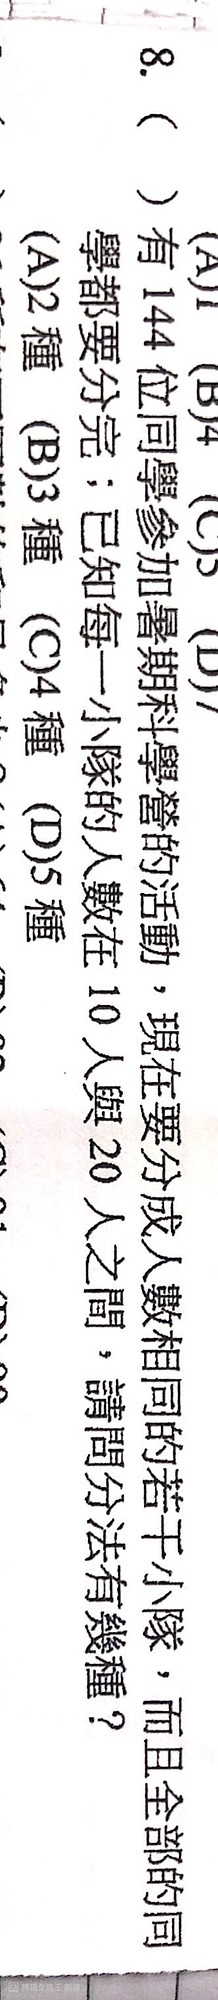 (A)1 (B)4 (C)5 (D)7
8. ( ) 有 144 位同學參加暑期科學營的活動，現在要分成人數相同的若干小隊，而且全部的同
學都要分完；已知每一小隊的人數在 10 人與 20 人之間，請問分法有幾種？
(A)2 種 (B)3 種 (C)4 種 (D)5 種